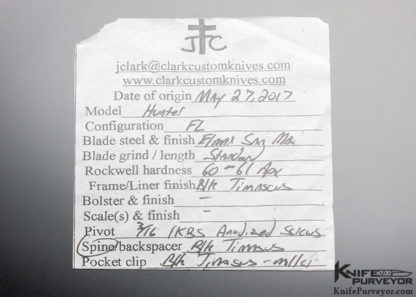 JTC
jclark@clarkcustomknives.com
www.clarkcustomknives.com
Date of origin May 27, 2017
Model Hunter
Configuration FL
Blade steel & finish San Mai
Blade grind / length Standard
Rockwell hardness 60-61
Frame/Liner finish Blk Timascus
Bolster & finish -
Scale(s) & finish -
Pivot 3/16 IKBS Anodized
Spine/backspacer Blk Timascus
Pocket clip Blk Timascus -
KNIFE
PURVEYOR
KnifePurveyor.com